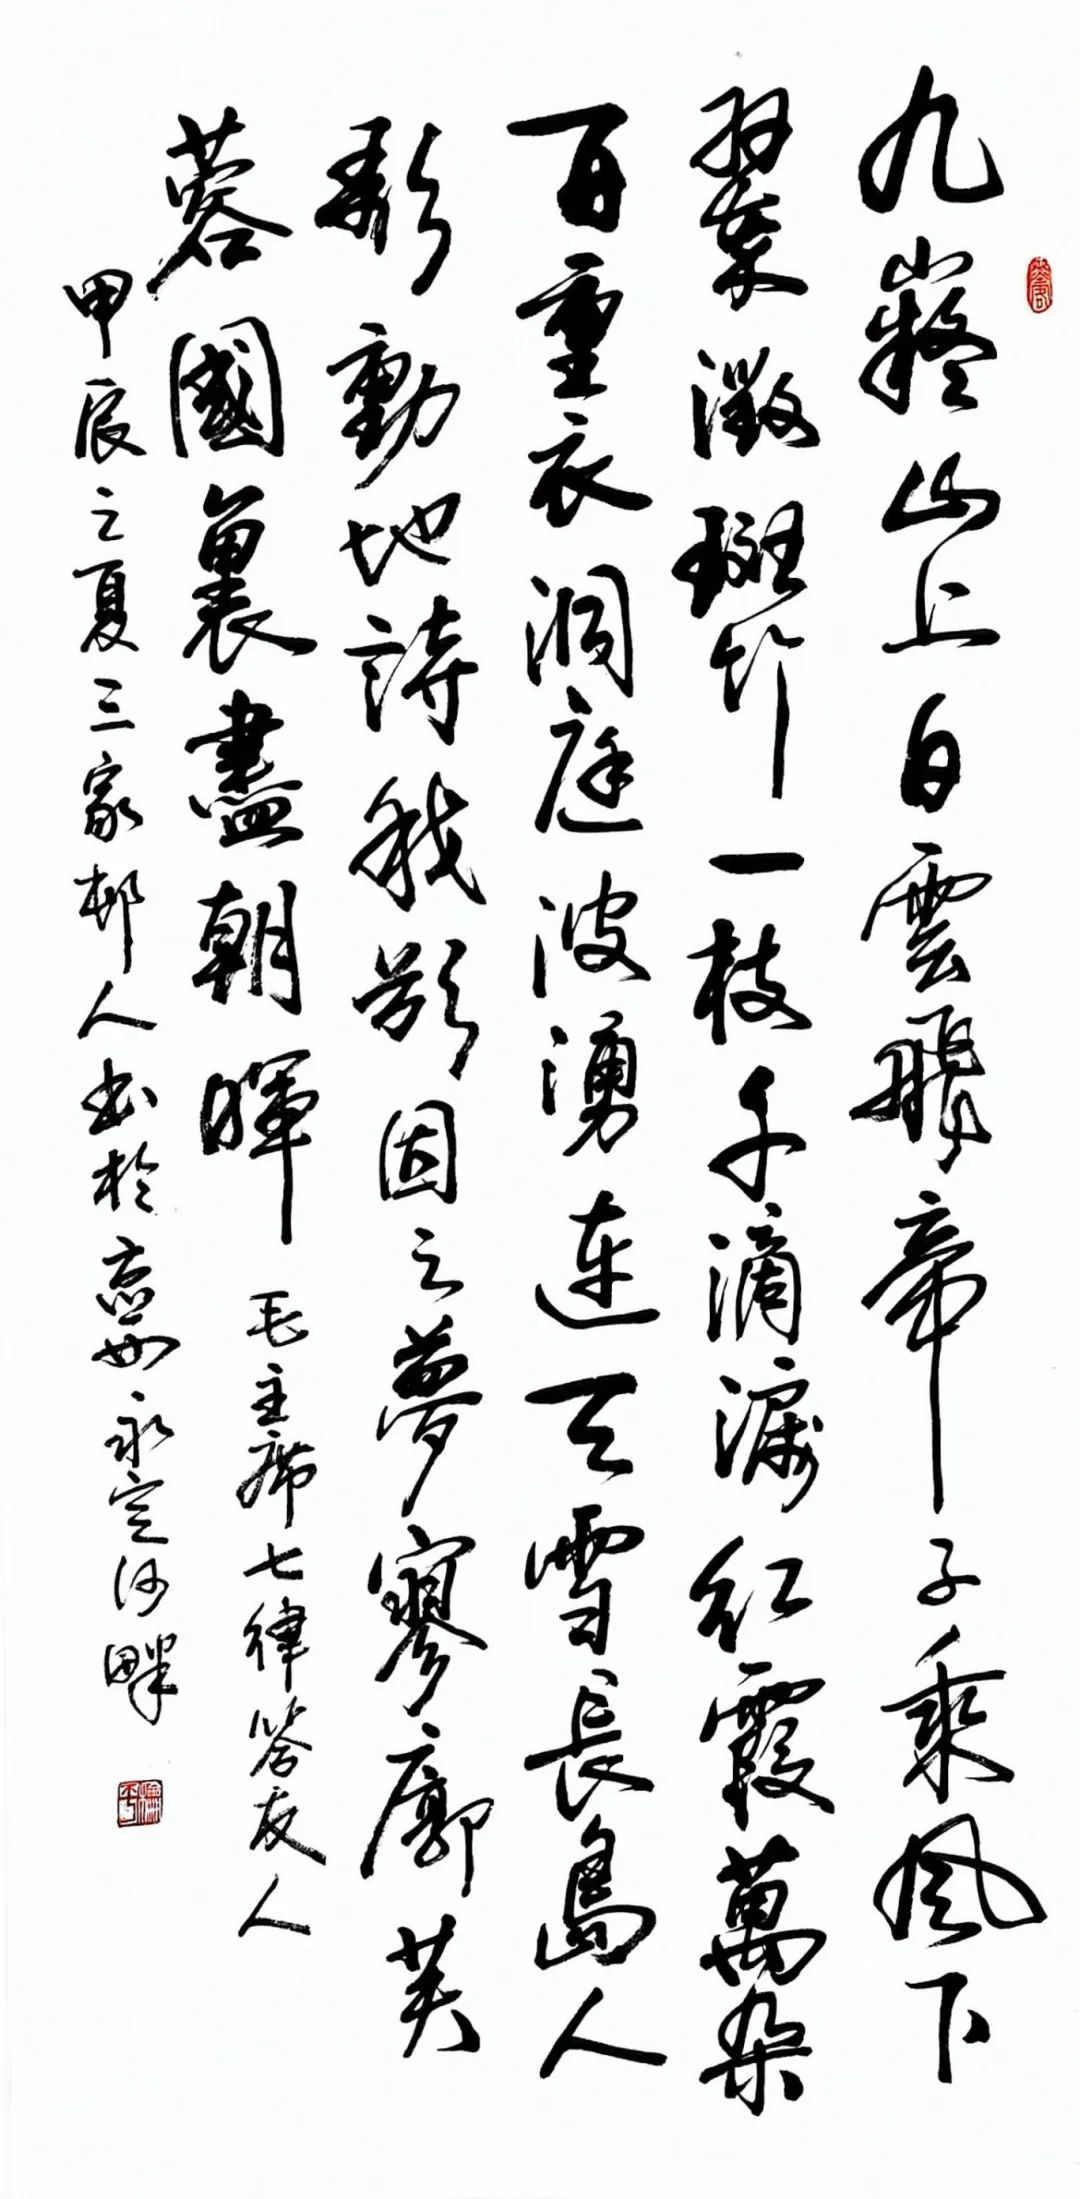 九嶷山上白雲飛帝子乘風下
翠微斑竹一枝千滴淚紅霞萬朵
百重衣洞庭波湧連天雪長島人
歌動地詩我欲因之夢寥廓芙
蓉國裏盡朝暉
毛主席七律答友人
甲辰之夏三家邨人書於京西永定河畔